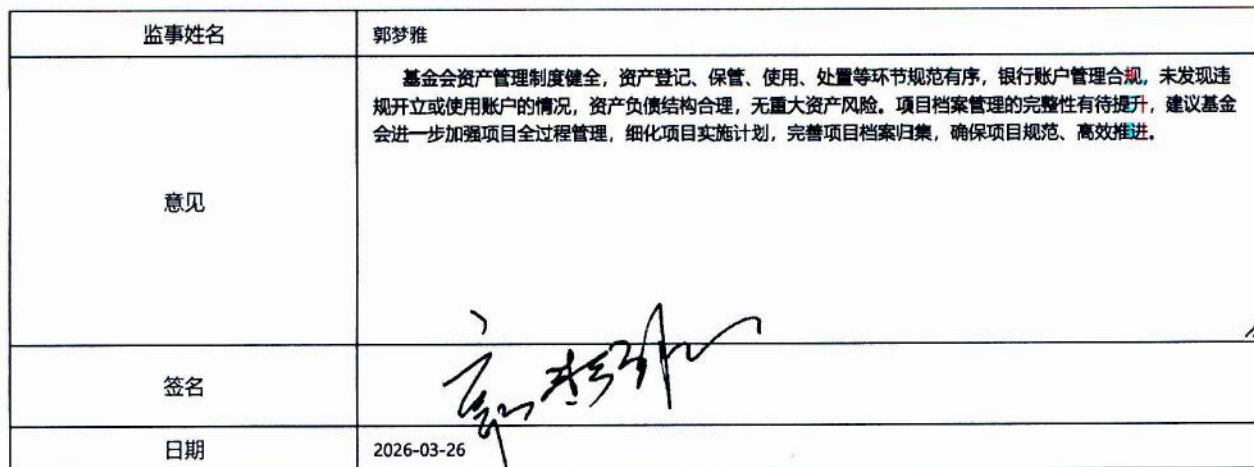 监事姓名
郭梦雅
基金会资产管理制度健全，资产登记、保管、使用、处置等环节规范有序，银行账户管理合规，未发现违
规开立或使用账户的情况，资产负债结构合理，无重大资产风险。项目档案管理的完整性有待提升，建议基金
会进一步加强项目全过程管理，细化项目实施计划，完善项目档案归集，确保项目规范、高效推进。
意见
签名
郭梦雅
日期
2026-03-26